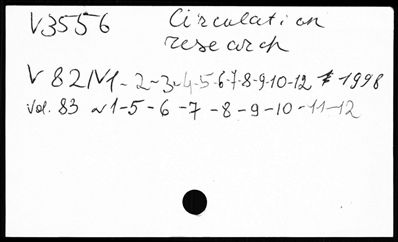 V3556 Circulation
research
V 82/V1-2-3-4-5-6-7-8-9-10-12 1998
Vol. 83 N1-5-6-7-8-9-10-11-12